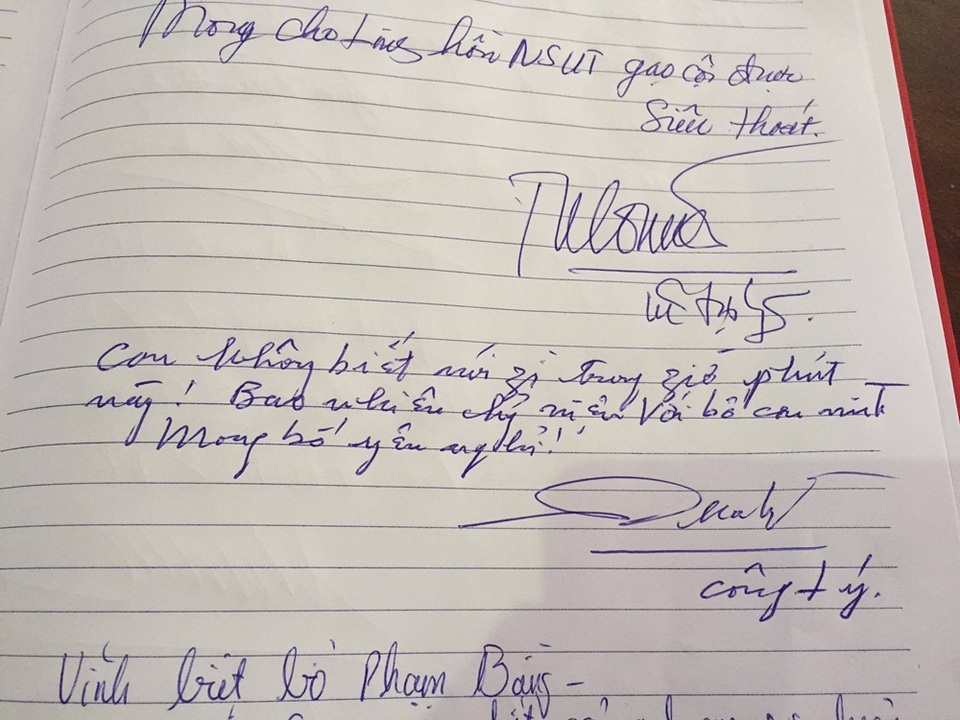 Mong cho tang hồn NSUT gạo cội được
Siêu thoát.
Con không biết nói gì trong giờ phút
này! Bao nhiêu kỷ niệm với bố con mình
Mong bố yên nghỉ!
công lý.
Vĩnh biệt bố Phạm Bằng -